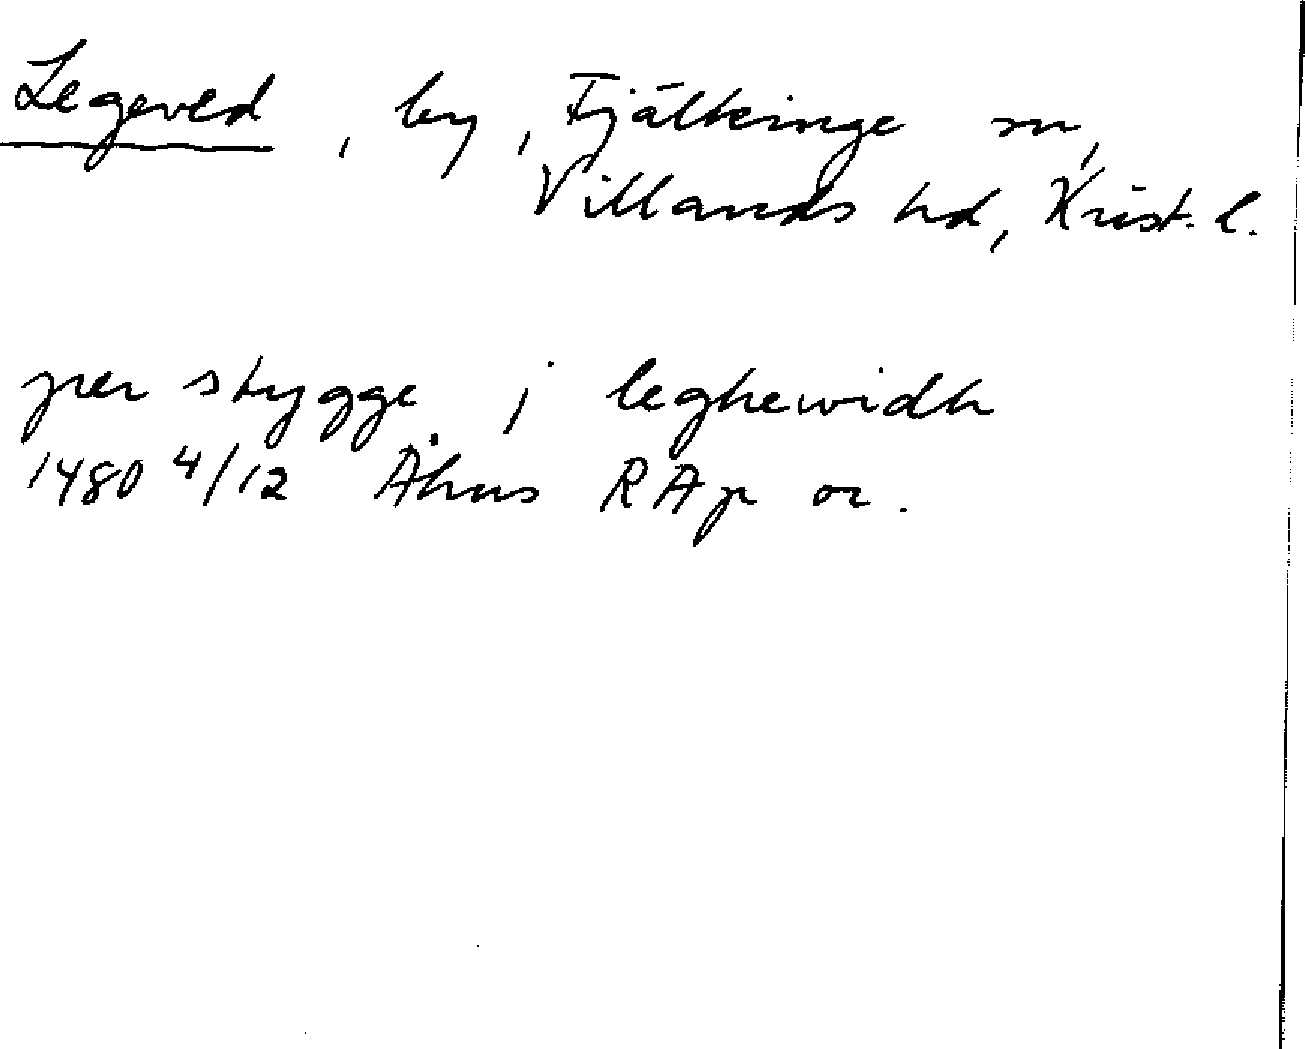 Legeved, by, Fjälkinge sn,
Villands hd, Krist. l.
per stygge j leghewidh
1480 4/12 Åhus RAp or.